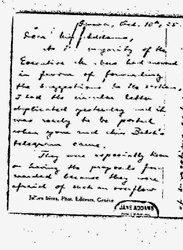 Geneva, Oct. 10th, 25.
Dear Miss Addams,
As a majority of the
Executive had moved
in favour of forwarding
the suggestions to the sections,
I had the circular letter
duplicated yesterday and it
was ready to be posted
when yours and Miss Balch's
telegram came.
They were especially keen
on having the proposals for-
warded because they were
afraid of such an overflow
Jullien frères, Phot. Editeurs, Genève